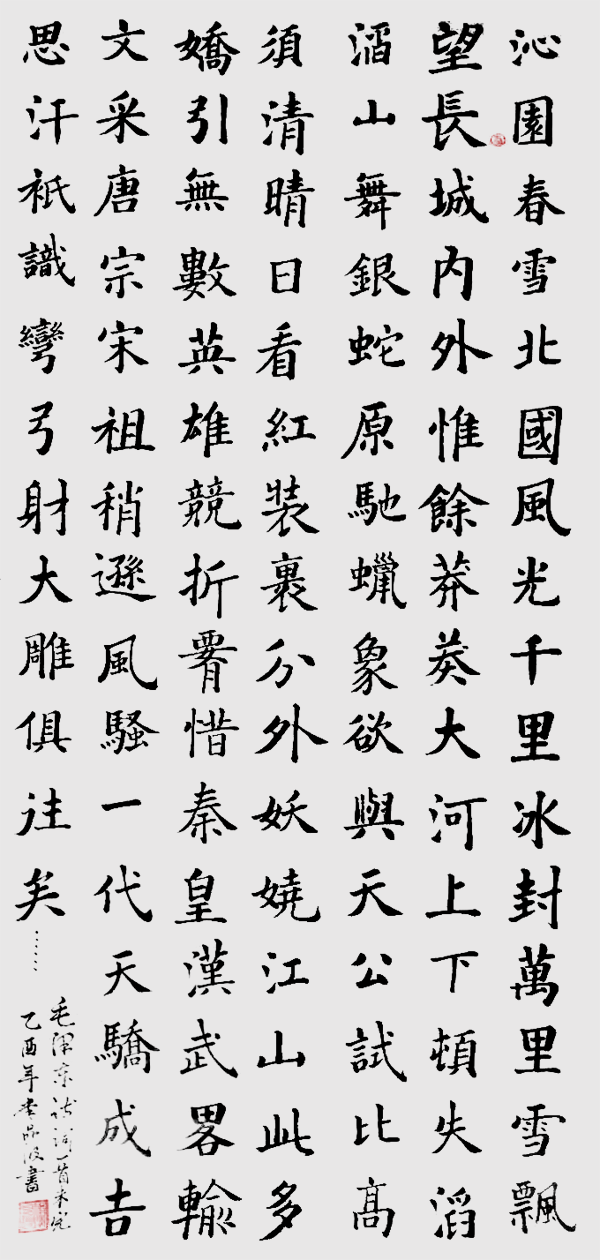 沁園春雪北國風光千里冰封萬里雪飄
望長城內外惟餘莽莽大河上下頓失滔
滔山舞銀蛇原馳蠟象欲與天公試比高
須清晴日看紅裝裹分外妖嬈江山此多
嬌引無數英雄競折腰惜秦皇漢武畧輸
文采唐宗宋祖稍遜風騷一代天驕成吉
思汗衹識彎弓射大雕俱往矣……
毛澤東詩詞一首未完
乙酉年書